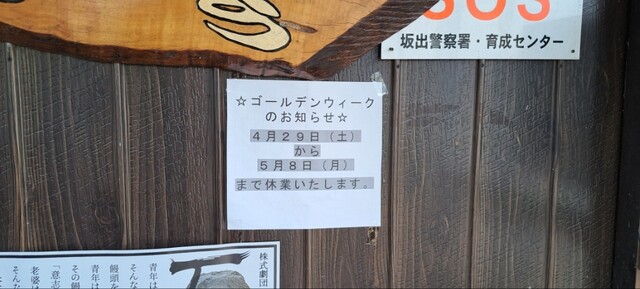 SOS
坂出警察署・育成センター
☆ゴールデンウィーク
のお知らせ☆
４月２９日（土）
から
５月８日（月）
まで休業いたします。
株式劇団
青年は
そんな
饅頭を
青年は
その饅
「意志
老婆は
そんな